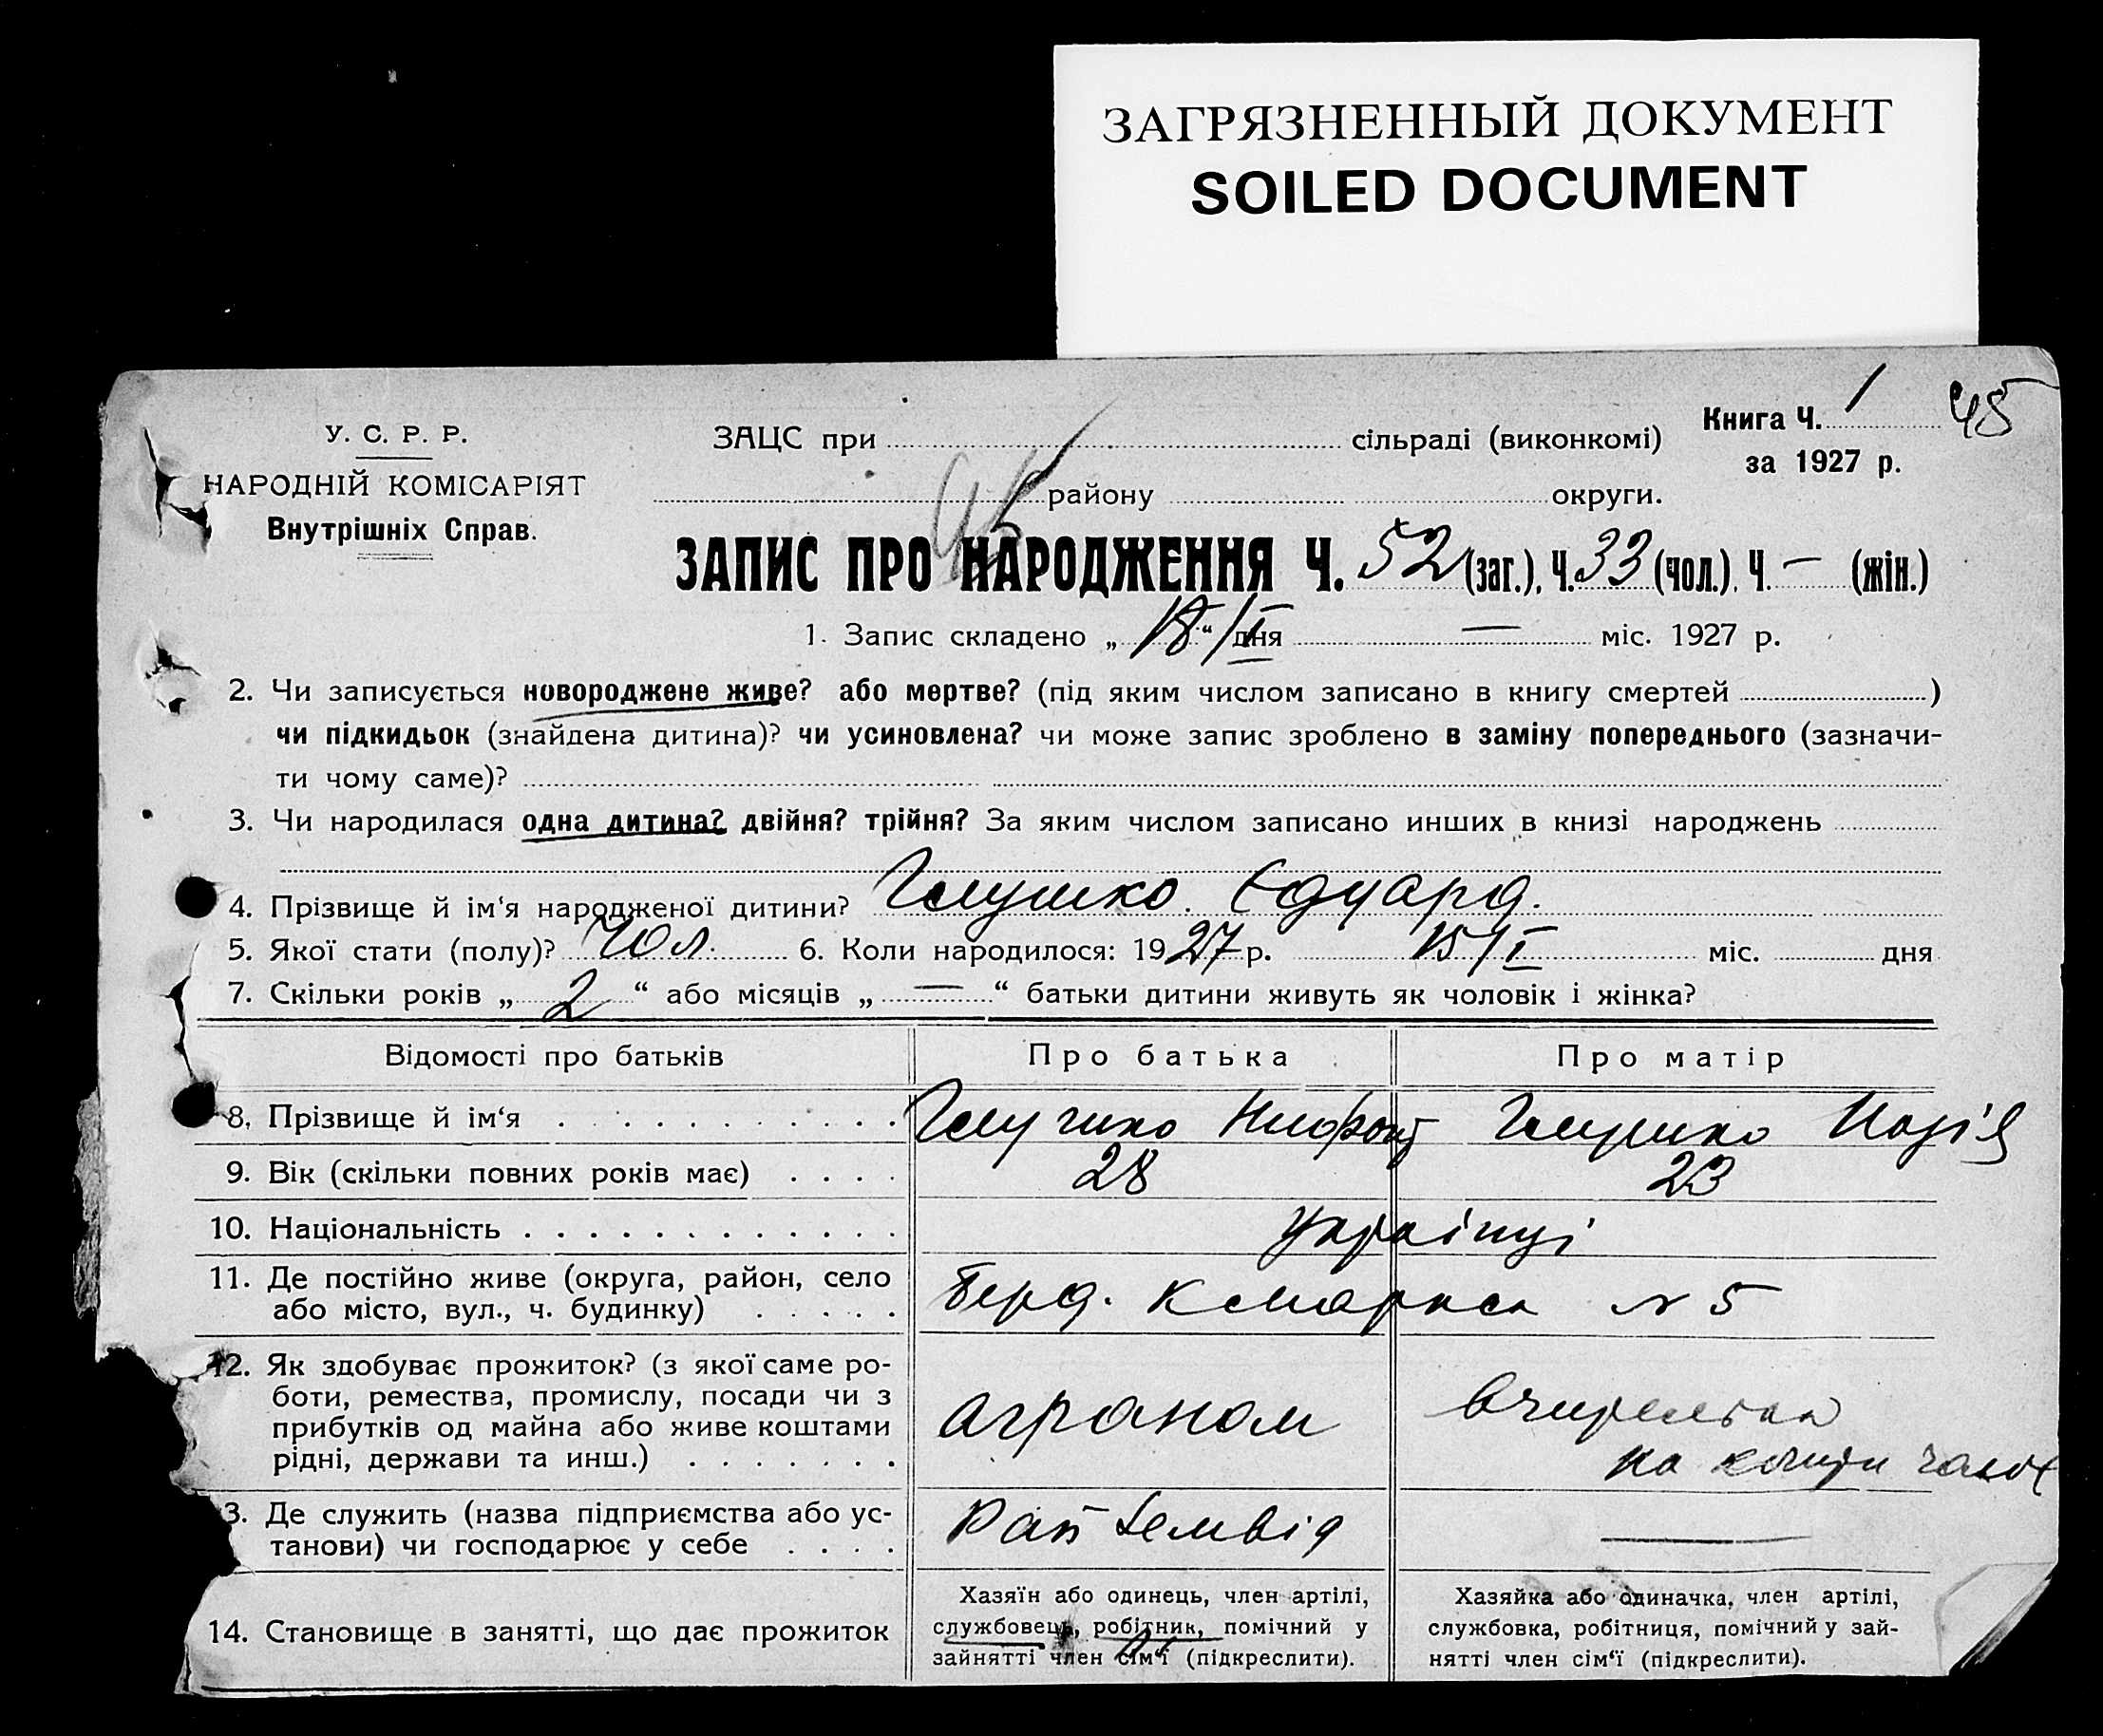 ЗАГРЯЗНЕННЫЙ ДОКУМЕНТ
SOILED DOCUMENT
У. С. Р. Р.
НАРОДНІЙ КОМІСАРІЯТ
Внутрішніх Справ.
ЗАЦС при сільраді (виконкомі)
району округи.
Книга Ч. 1
45
за 1927 р.
ЗАПИС ПРО НАРОДЖЕННЯ Ч. 52 (заг.), Ч. 33 (чол.), Ч. — (жін.)
1. Запис складено „18/I“ дня — міс. 1927 р.
2. Чи записується новороджене живе? або мертве? (під яким числом записано в книгу смертей )
чи підкидьок (знайдена дитина)? чи усиновлена? чи може запис зроблено в заміну попереднього (зазначи-
ти чому саме)?
3. Чи народилася одна дитина? двійня? трійня? За яким числом записано инших в книзі народжень
4. Прізвище й ім‘я народженої дитини? Глушко Едуард.
5. Якої стати (полу)? Чол. 6. Коли народилося: 1927 р. 15/I міс. дня
7. Скільки років „ 2 “ або місяців „ — “ батьки дитини живуть як чоловік і жінка?
Відомості про батьків Про батька Про матір
8. Прізвище й ім‘я Глушко Глушко
9. Вік (скільки повних років має) 28 23
10. Національність українці
11. Де постійно живе (округа, район, село
або місто, вул., ч. будинку) Берд. К Маркса № 5
12. Як здобуває прожиток? (з якої саме ро-
боти, ремества, промислу, посади чи з
прибутків од майна або живе коштами
рідні, держави та инш.) аграном вчителька
на кошти
13. Де служить (назва підприємства або ус-
танови) чи господарює у себе Рай —
14. Становище в занятті, що дає прожиток
Хазяїн або одинець, член артілі,
службовець, робітник, помічний у
зайнятті член сім‘ї (підкреслити).
Хазяйка або одиначка, член артілі,
службовка, робітниця, помічний у зай-
нятті член сім‘ї (підкреслити).